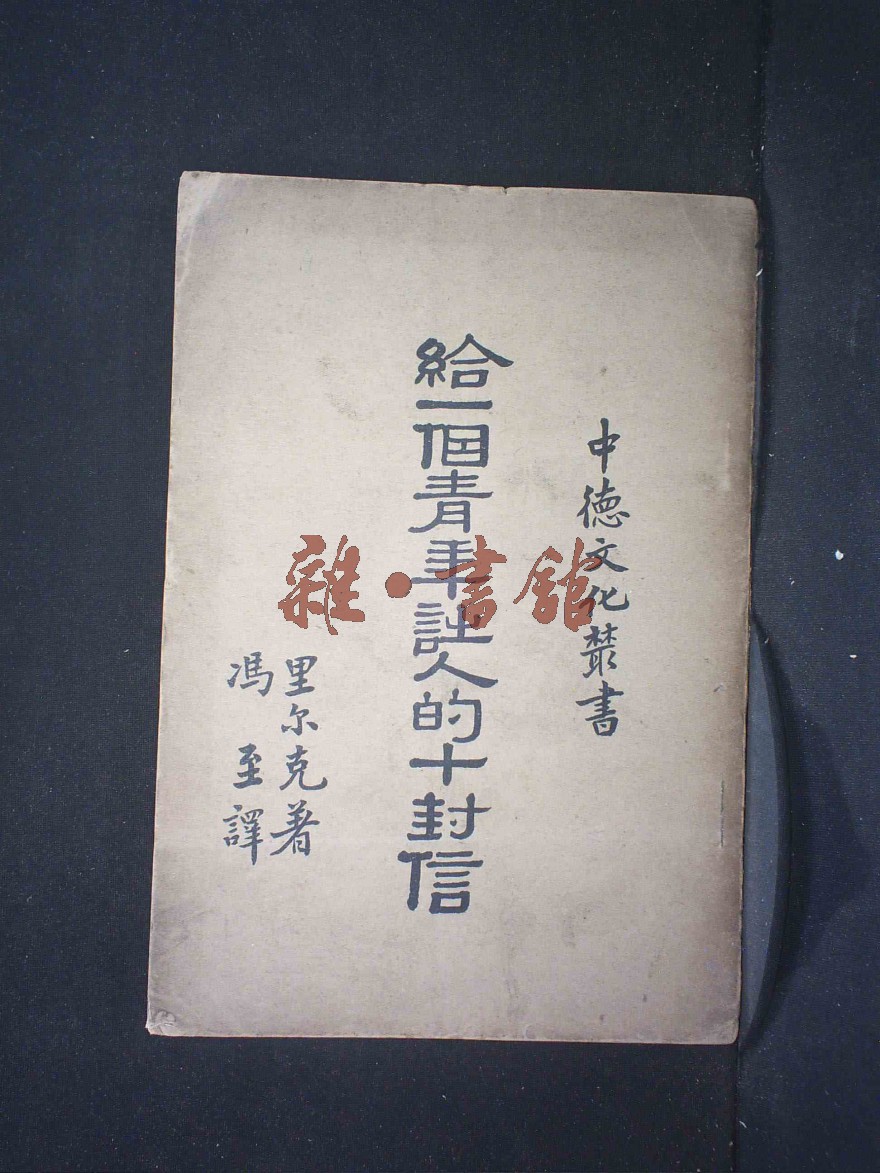 中德文化叢書
給一個青年詩人的十封信
里尔克著
馮至譯
雜·書館